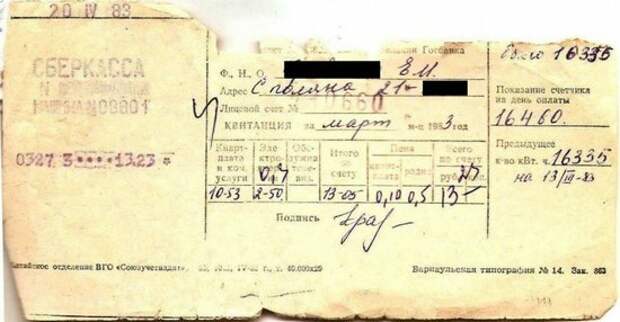 20 IV 83
СБЕРКАССА
N
09801
0327 3 •••• 13.23 *
Госбанка
Ф., И., О. Е.И.
Адрес С. поляна 21-
Лицевой счет № 210660
КВИТАНЦИЯ за март м-ц 1983 год
Кварт-плата и ком. услуги
Эле ктро-
Об служива
Итого по счету
Пеня
кварт-плата
радио
Всего по счету
руб.
10-53 2-50 13-05 0,10 0,5 13-
Подпись
было 16335
Показание счетчика на день оплаты
16460.
Предыдущее
к-во кВт. ч. 16335
на 13/III-83
Алтайское отделение ВГО «Союзучетиздат»
Барнаульская типография № 14. Зак. 863